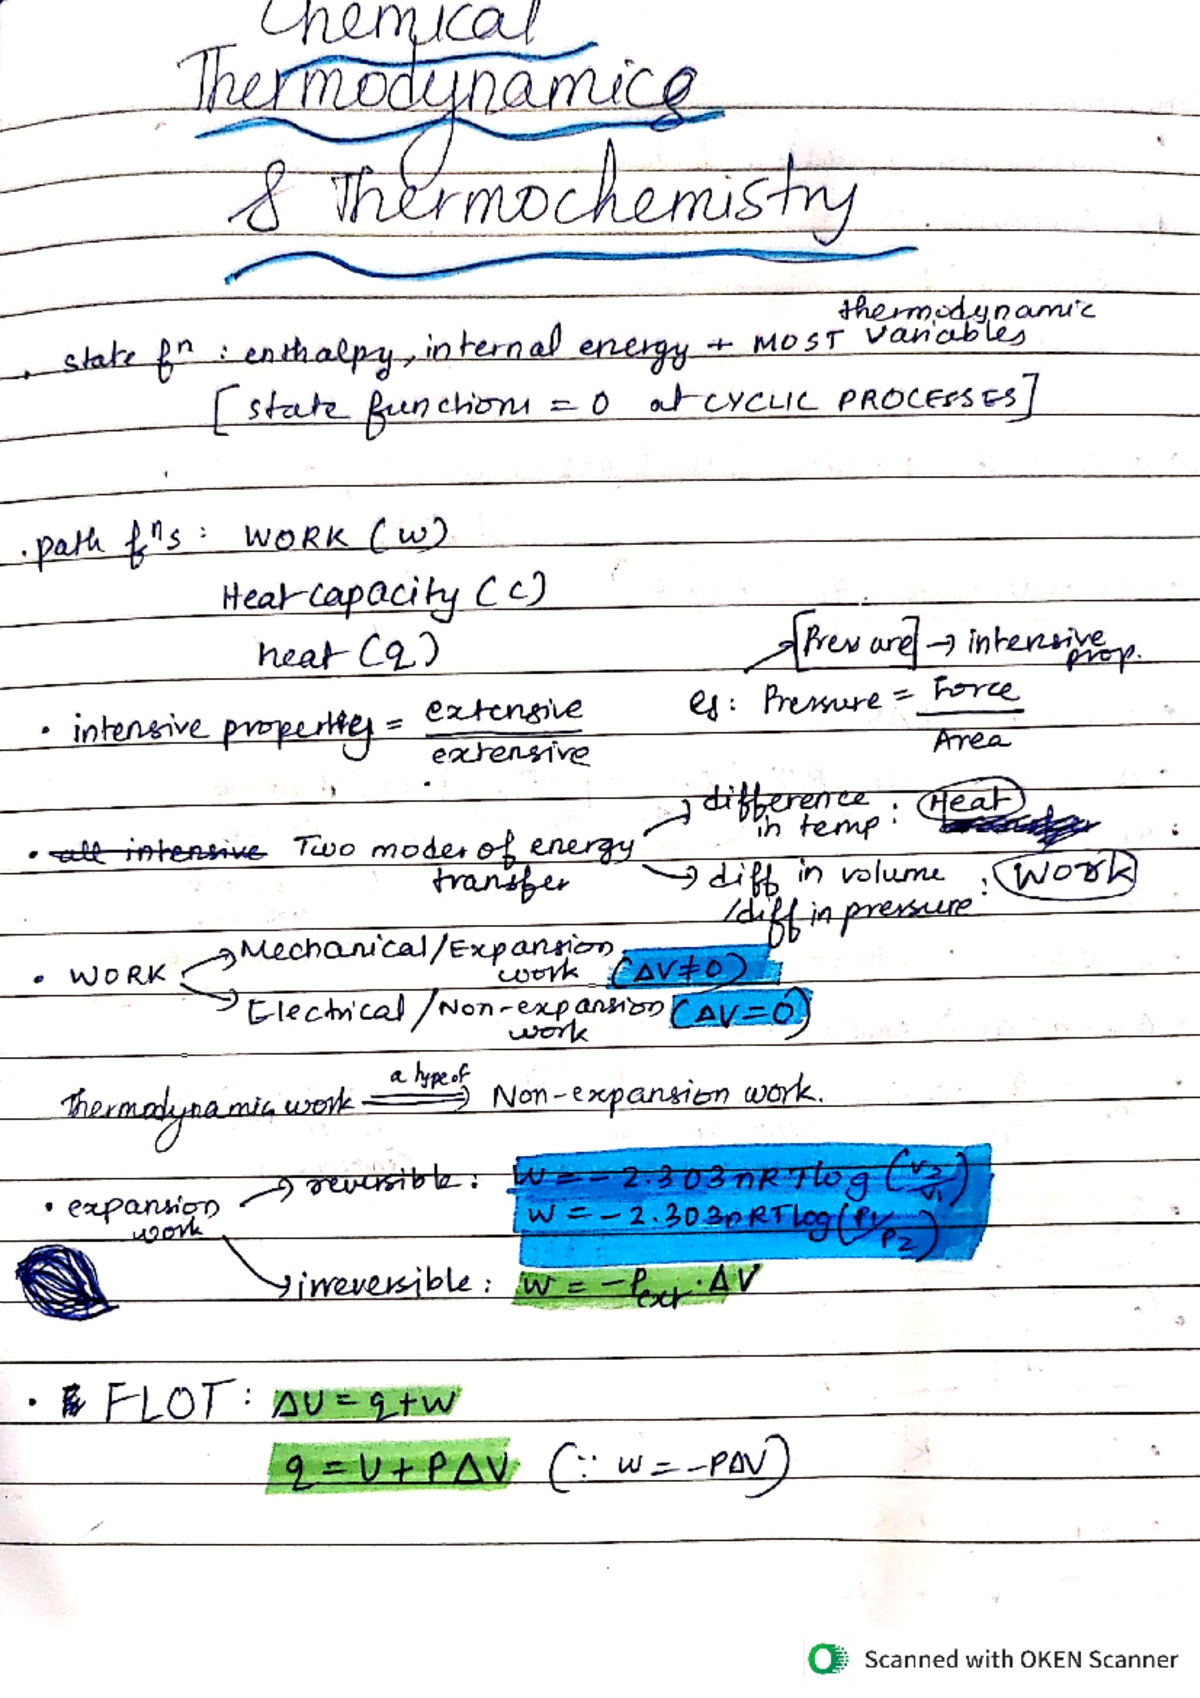 Chemical
Thermodynamics
& Thermochemistry
thermodynamic
. state fⁿ : enthalpy, internal energy + MOST variables
[state functions = 0 at CYCLIC PROCESSES]
. path fⁿs : WORK (w)
Heat capacity (c)
heat (q)
[Pressure] → intensive prop.
• intensive properties = extensive / extensive
eg: Pressure = Force / Area
• all intensive Two modes of energy transfer
→ difference in temp : Heat
→ diff in volume / diff in pressure : WORK
• WORK → Mechanical/Expansion work (ΔV≠0)
→ Electrical/Non-expansion work (ΔV=0)
Thermodynamic work a type of ⇒ Non-expansion work.
• expansion work → reversible : W = -2.303nRTlog(V2/V1)
W = -2.303nRTlog(P1/P2)
→ irreversible : W = -Pext · ΔV
• FLOT : ΔU = q+w
q = U + PΔV (∵ w = -PΔV)
Scanned with OKEN Scanner